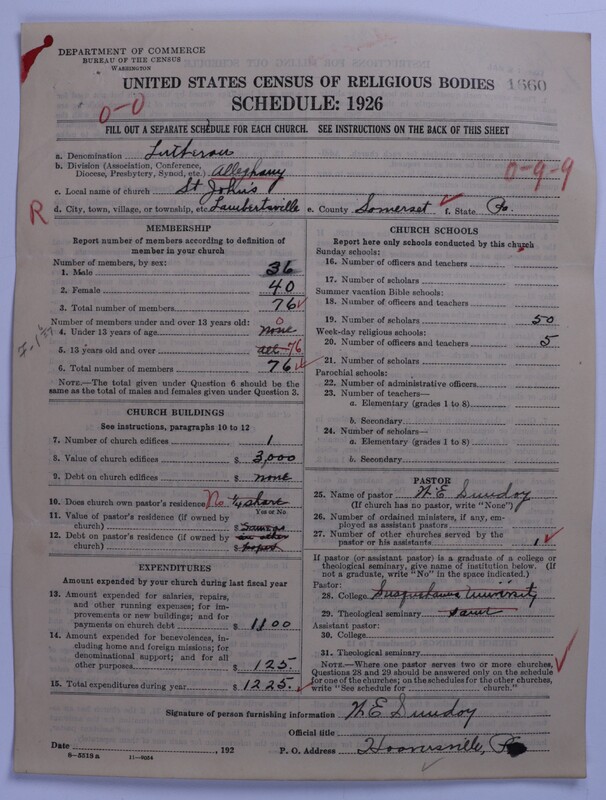 DEPARTMENT OF COMMERCE
BUREAU OF THE CENSUS
WASHINGTON
UNITED STATES CENSUS OF RELIGIOUS BODIES 1660
SCHEDULE: 1926
0-0
FILL OUT A SEPARATE SCHEDULE FOR EACH CHURCH. SEE INSTRUCTIONS ON THE BACK OF THIS SHEET
a. Denomination Lutheran
b. Division (Association, Conference,
Diocese, Presbytery, Synod, etc.) Alleghany
0-9-9
c. Local name of church St John's
R d. City, town, village, or township, etc. Lambertsville e. County Somerset f. State Pa.
MEMBERSHIP
Report number of members according to definition of
member in your church
Number of members, by sex:
1. Male 36
2. Female 40
3. Total number of members 76
Number of members under and over 13 years old: 0
4. Under 13 years of age none
5. 13 years old and over all 76
6. Total number of members 76
NOTE.—The total given under Question 6 should be
the same as the total of males and females given under Question 3.
CHURCH BUILDINGS
See instructions, paragraphs 10 to 12
7. Number of church edifices 1
8. Value of church edifices $ 3,000
9. Debt on church edifices $ none
10. Does church own pastor's residence No 1/4 share
Yes or No
11. Value of pastor's residence (if owned by
church) $ Same as
12. Debt on pastor's residence (if owned by in other
church) $ report
EXPENDITURES
Amount expended by your church during last fiscal year
13. Amount expended for salaries, repairs,
and other running expenses; for im-
provements or new buildings; and for
payments on church debt $ 1100
14. Amount expended for benevolences, in-
cluding home and foreign missions; for
denominational support; and for all
other purposes $ 125.
15. Total expenditures during year $ 1225.
CHURCH SCHOOLS
Report here only schools conducted by this church
Sunday schools:
16. Number of officers and teachers
17. Number of scholars
Summer vacation Bible schools:
18. Number of officers and teachers
19. Number of scholars 50
Week-day religious schools:
20. Number of officers and teachers 5
21. Number of scholars
Parochial schools:
22. Number of administrative officers
23. Number of teachers—
a. Elementary (grades 1 to 8)
b. Secondary
24. Number of scholars—
a. Elementary (grades 1 to 8)
b. Secondary
PASTOR
25. Name of pastor W. E. Sunday
(If church has no pastor, write "None")
26. Number of ordained ministers, if any, em-
ployed as assistant pastors
27. Number of other churches served by the
pastor or his assistants 1
If pastor (or assistant pastor) is a graduate of a college or
theological seminary, give name of institution below. (If
not a graduate, write "No" in the space indicated.)
Pastor:
28. College Susquehanna University
29. Theological seminary same
Assistant pastor:
30. College
31. Theological seminary
NOTE.—Where one pastor serves two or more churches,
Questions 28 and 29 should be answered only on the schedule
for one of the churches; on the schedules for the other churches,
write "See schedule for church."
Signature of person furnishing information W E Sunday
Official title
Date , 192 P. O. Address Hooversville, Pa
8-5319 a 11-9064